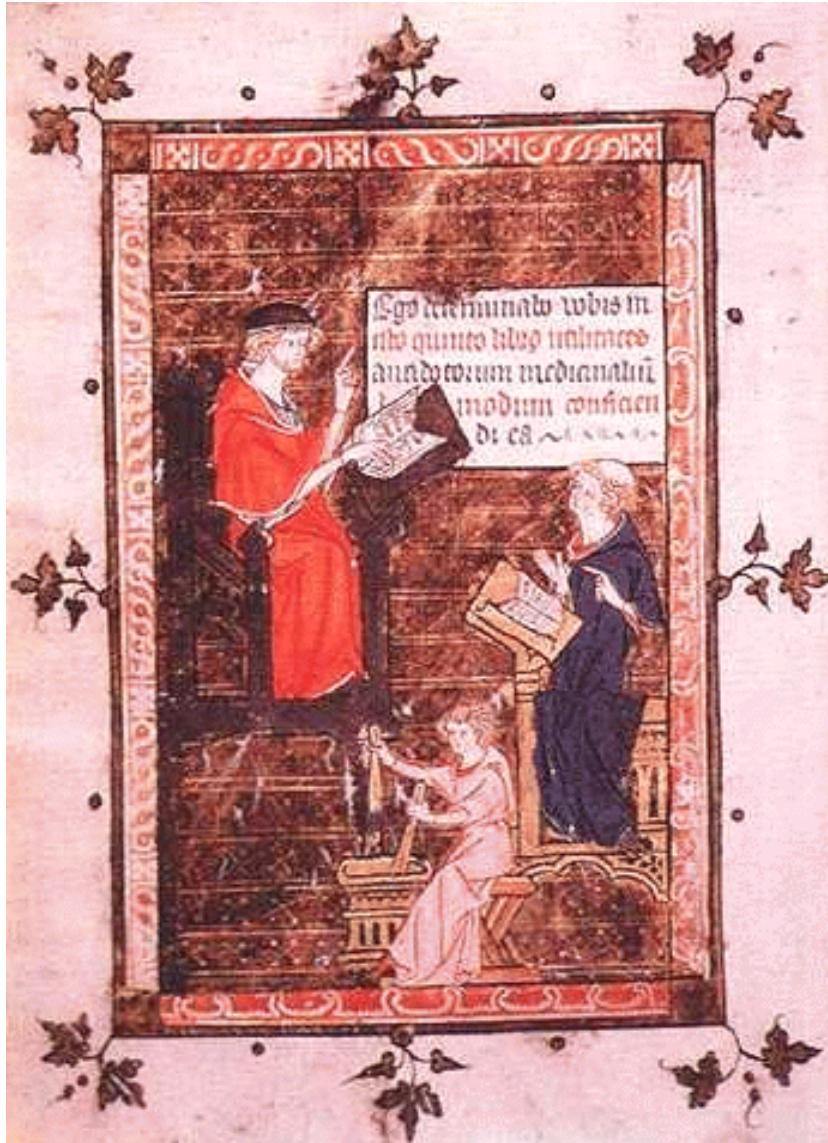 Ego determinabo vobis in
isto quinto libro utilitates
antidotorum medicinaliũ
modum conficien
di ea